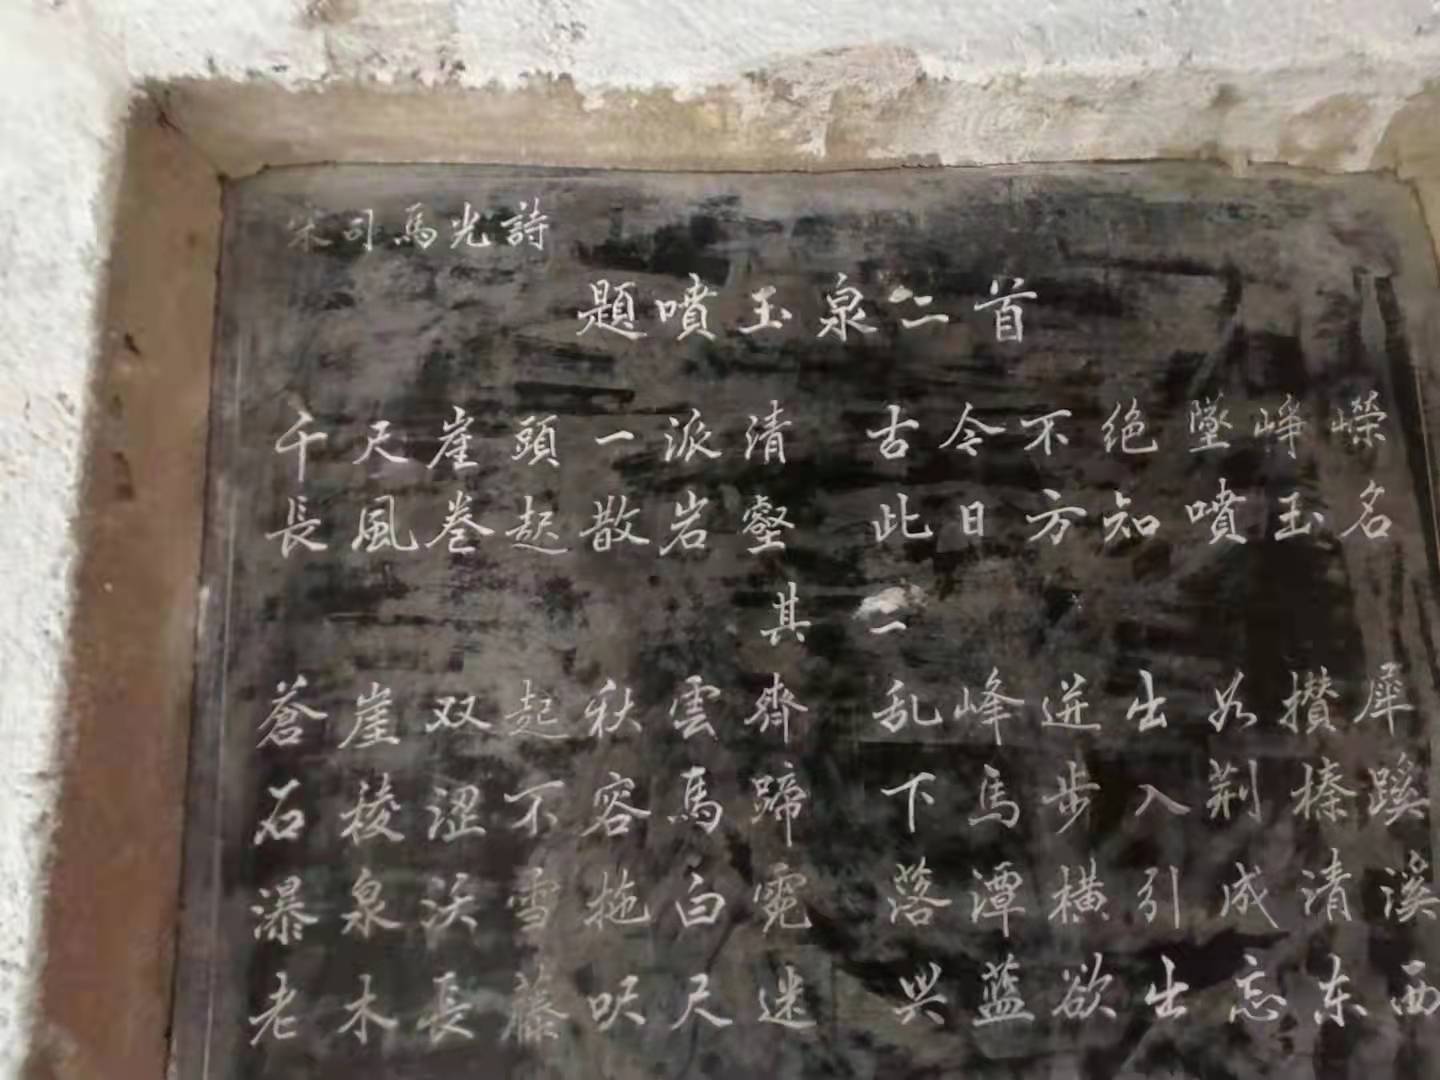 宋司馬光詩
題噴玉泉二首
千尺崖頭一派清 古今不绝墜峥嶸
長風卷起散岩壑 此日方知噴玉名
其二
蒼崖双起秋雲齊 乱峰迸出如攅犀
石棱涩不容馬蹄 下馬步入荆榛蹊
瀑泉沃雪拖白霓 落潭横引成清溪
老木長藤咫尺迷 兴蓝欲出忘东西